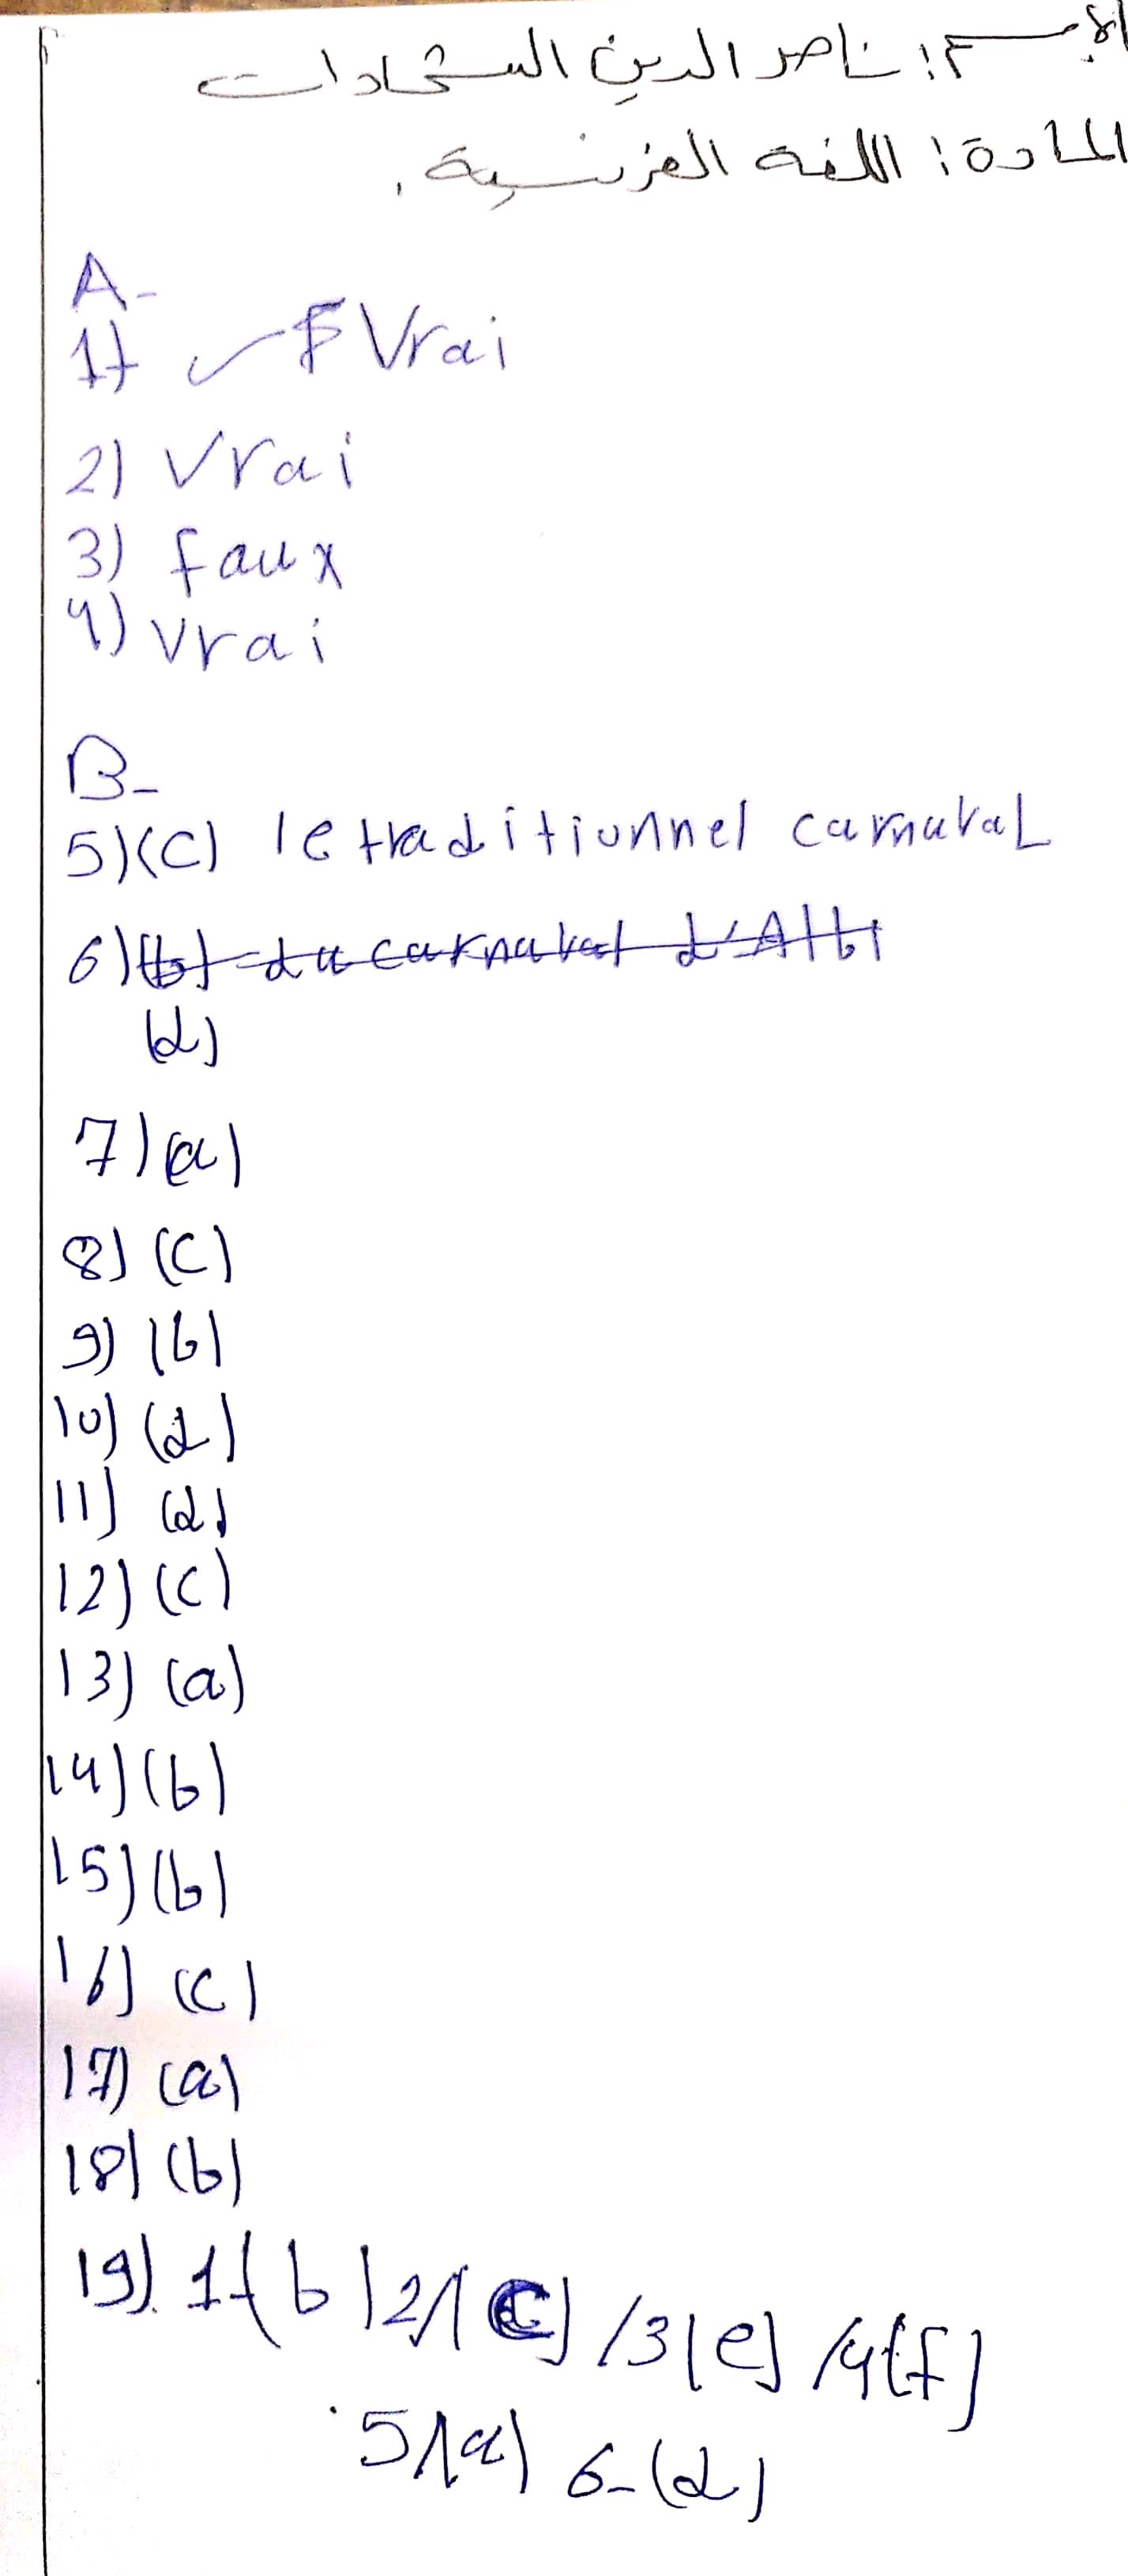 الاسم: ناصر الدين الشحادات
المادة: اللغة الفرنسية.
A-
1) Vrai
2) Vrai
3) faux
4) vrai
B-
5)(c) le traditionnel carnaval
6)(b) du carnaval d'Albi
(d)
7)(a)
8) (c)
9) (b)
10) (d)
11) (d)
12) (c)
13) (a)
14) (b)
15) (b)
16) (c)
17) (a)
18) (b)
19). 1-(b) 2/(c) /3(e) /4(f)
5/(a) 6-(d)